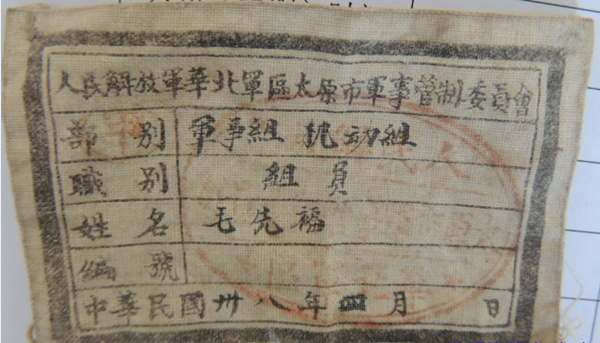 人民解放軍華北軍區太原市軍事管制委員會
部別 軍事組 机动組
職別 組員
姓名 毛先福
編號
中華民國卅八年四月 日